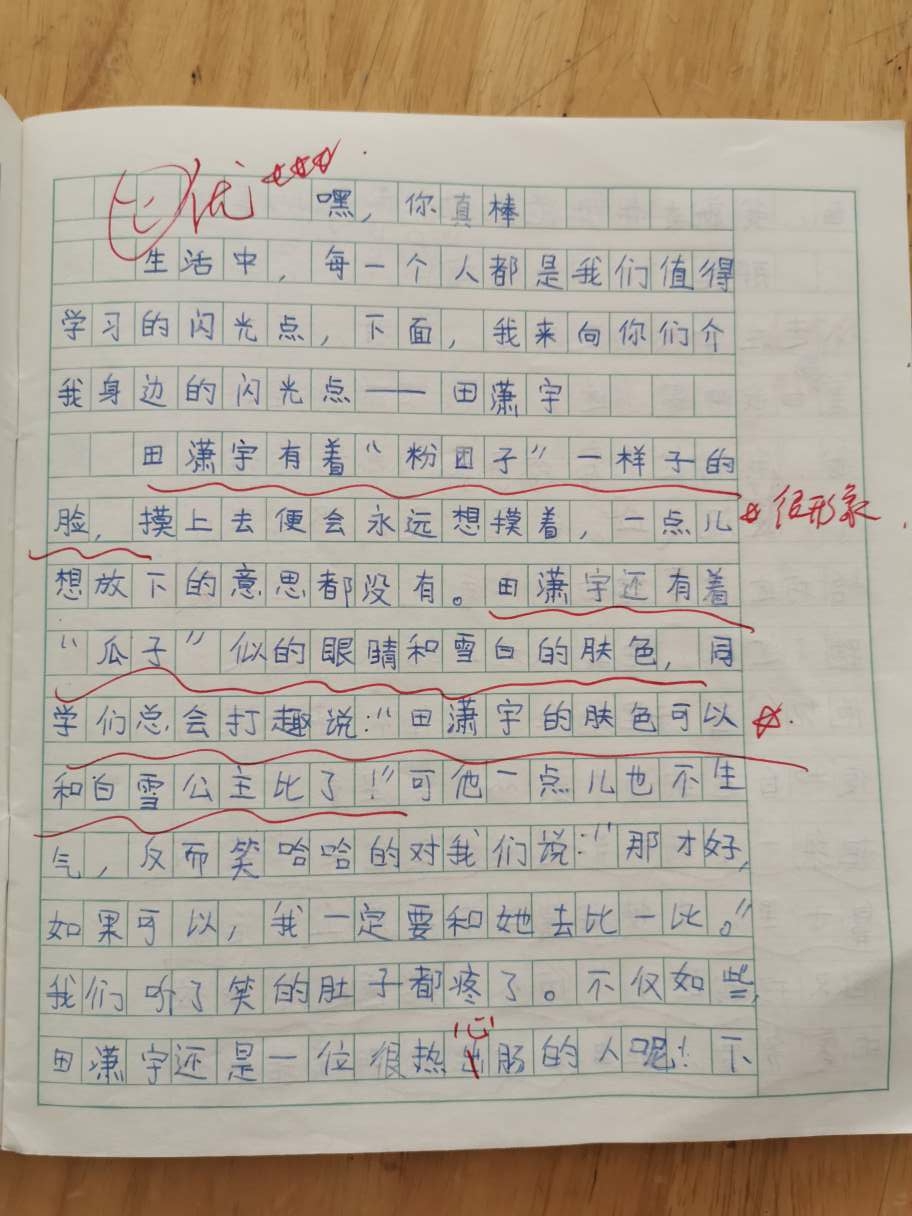 优
嘿，你真棒
生活中，每一个人都是我们值得
学习的闪光点，下面，我来向你们介
我身边的闪光点——田潇宇
田潇宇有着“粉团子”一样子的
脸，摸上去便会永远想摸着，一点儿
很形象
想放下的意思都没有。田潇宇还有着
“瓜子”似的眼睛和雪白的肤色，同
学们总会打趣说：“田潇宇的肤色可以
和白雪公主比了！”可他一点儿也不生
气，反而笑哈哈的对我们说：“那才好，
如果可以，我一定要和她去比一比。”
我们听了笑的肚子都疼了。不仅如些，
心
田潇宇还是一位很热肠的人呢！下